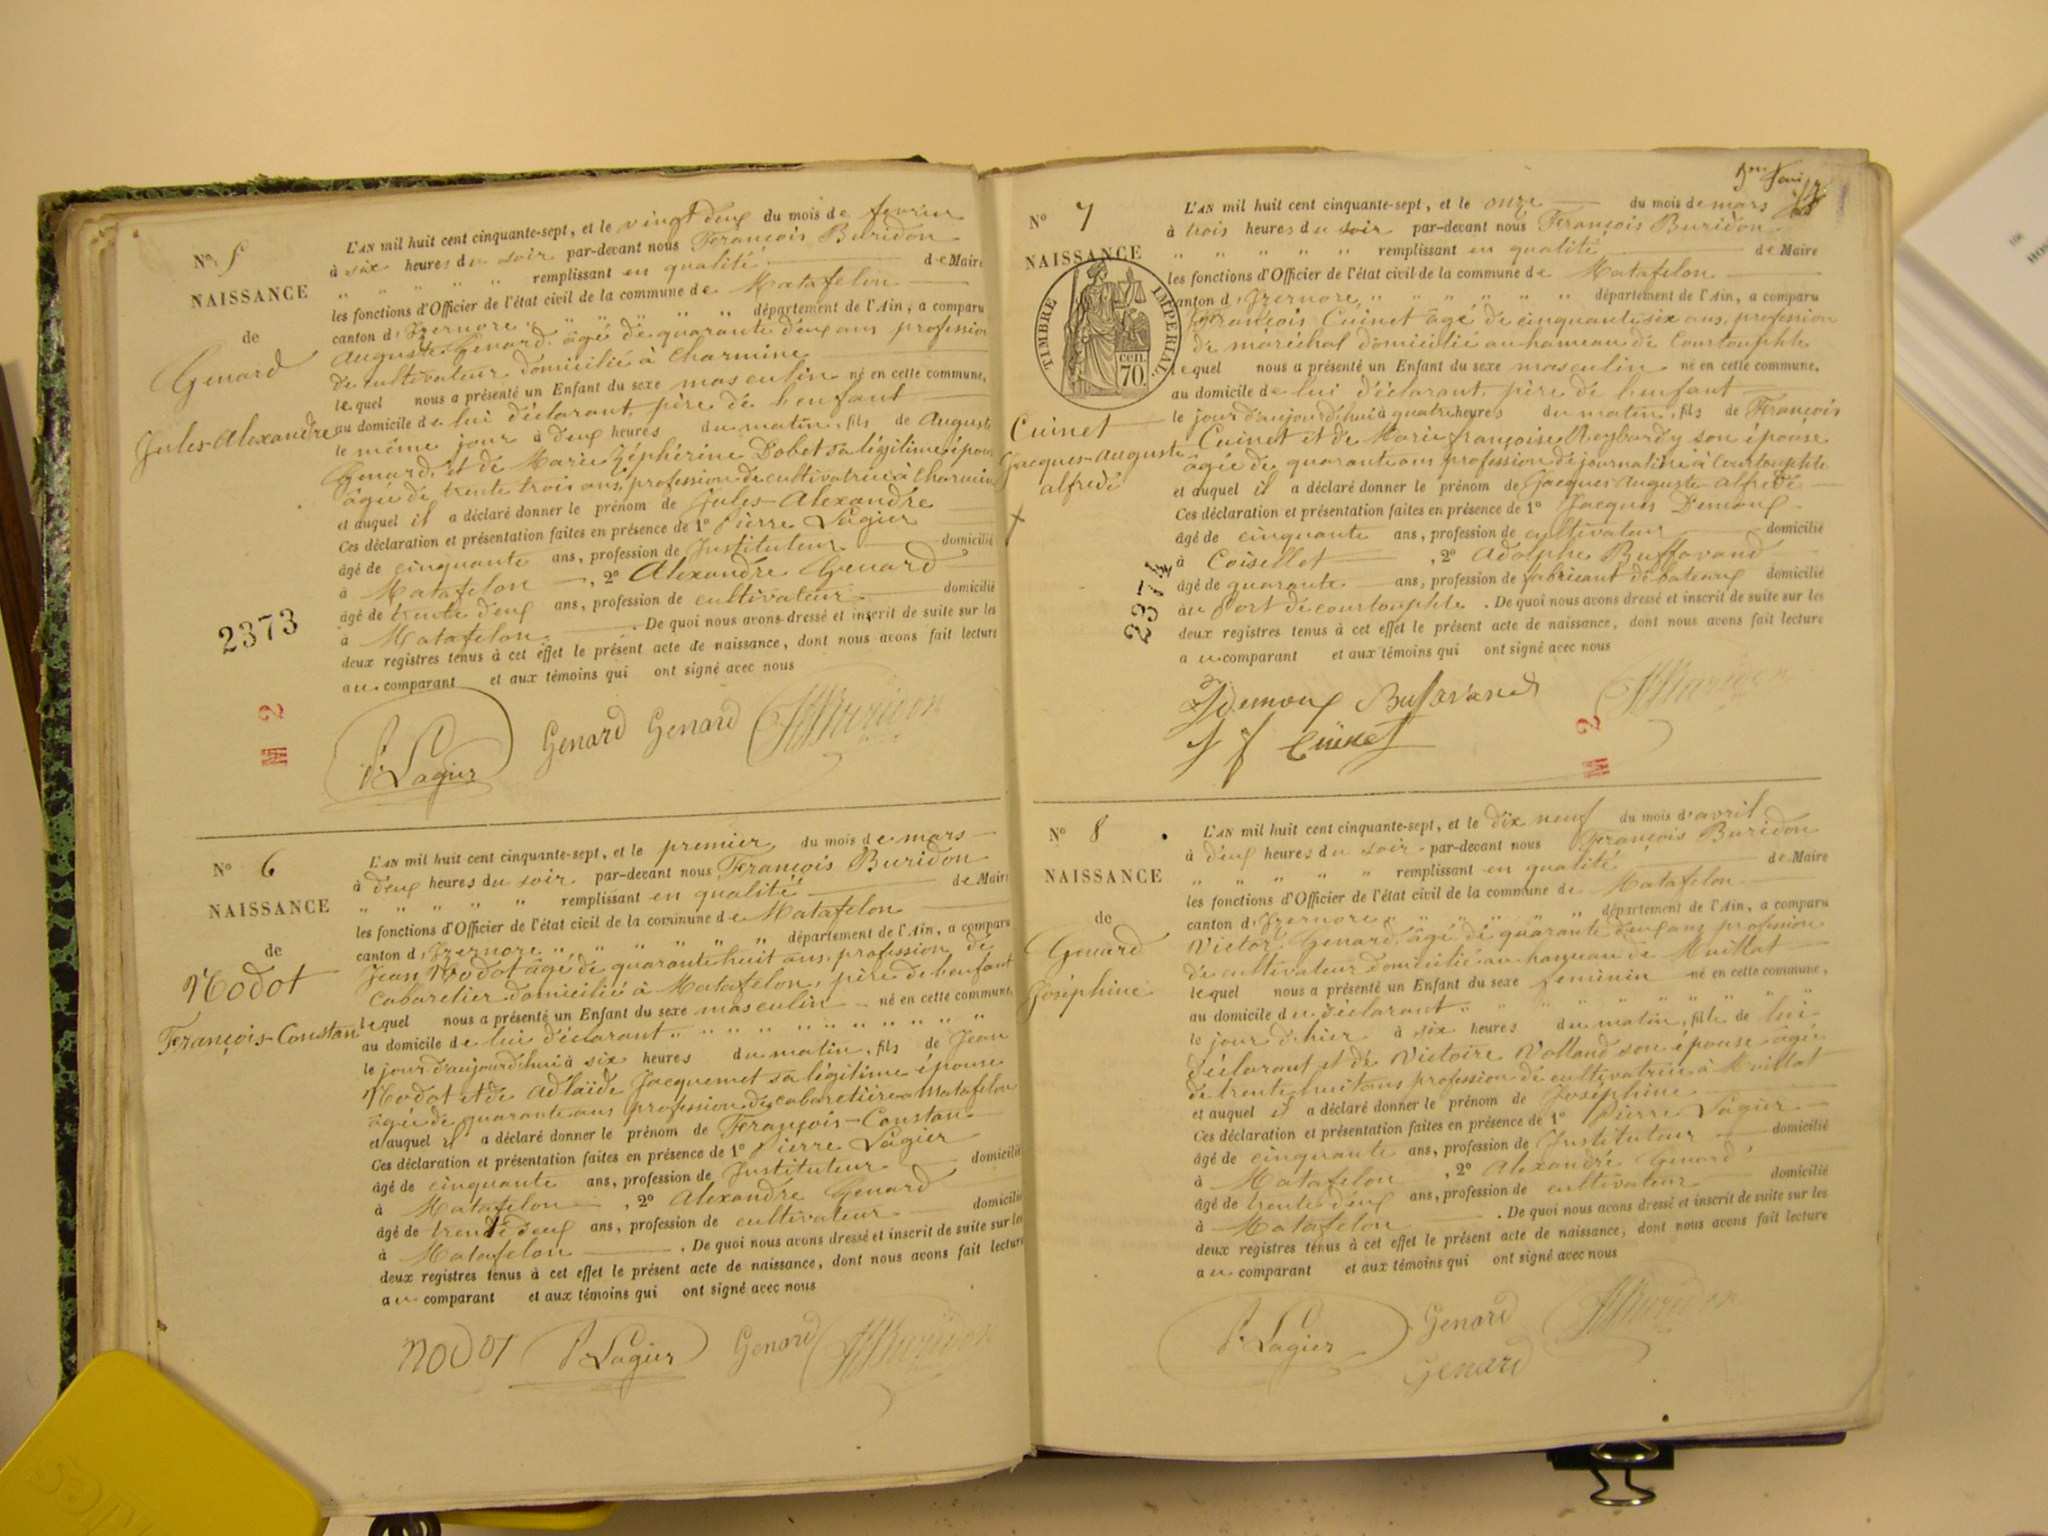 N° 5
NAISSANCE
de
Genard
Jules-Alexandre
2373
L'AN mil huit cent cinquante-sept, et le vingt deux du mois de fevrier
à six heures du soir par-devant nous François Buridon
" " " " " remplissant en qualité de Maire
les fonctions d'Officier de l'état civil de la commune de Matafelon
canton d'Izernore " " " " " " département de l'Ain, a comparu
Auguste Genard, âgé de quarante deux ans profession
de cultivateur domicilié à Charmine
lequel nous a présenté un Enfant du sexe masculin né en cette commune,
au domicile de lui déclarant, père de l'enfant
le même jour à deux heures du matin, fils de Auguste
Genard, et de Marie Zéphérine Dobet sa légitime épouse
âgée de trente trois ans, profession de cultivatrice à Charmine
et auquel il a déclaré donner le prénom de Jules-Alexandre
Ces déclaration et présentation faites en présence de 1° Pierre Lagier
âgé de cinquante ans, profession de Instituteur domicilié
à Matafelon, 2° Alexandre Genard
âgé de trente deux ans, profession de cultivateur domicilié
à Matafelon. De quoi nous avons dressé et inscrit de suite sur les
deux registres tenus à cet effet le présent acte de naissance, dont nous avons fait lecture
au comparant et aux témoins qui ont signé avec nous
P. Lagier Genard Genard Buridon
M 2
N° 6
NAISSANCE
de
Nodot
François-Constan
L'AN mil huit cent cinquante-sept, et le premier du mois de mars
à deux heures du soir par-devant nous François Buridon
" " " " " remplissant en qualité de Maire
les fonctions d'Officier de l'état civil de la commune de Matafelon
canton d'Izernore " " " " " " département de l'Ain, a comparu
Jean Nodot âgé de quarante huit ans, profession de
cabaretier domicilié à Matafelon, père de l'enfant
lequel nous a présenté un Enfant du sexe masculin né en cette commune,
au domicile de lui déclarant " " " " " " " " " "
le jour d'aujourd'hui à six heures du matin, fils de Jean
Nodot et de Adlaïde Jacquemet sa légitime épouse
âgée de quarante ans profession de cabaretière à Matafelon
et auquel il a déclaré donner le prénom de François-Constan
Ces déclaration et présentation faites en présence de 1° Pierre Lagier
âgé de cinquante ans, profession de Instituteur domicilié
à Matafelon, 2° Alexandre Genard
âgé de trente deux ans, profession de cultivateur domicilié
à Matafelon. De quoi nous avons dressé et inscrit de suite sur les
deux registres tenus à cet effet le présent acte de naissance, dont nous avons fait lecture
au comparant et aux témoins qui ont signé avec nous
Nodot P. Lagier Genard Buridon
N° 7
NAISSANCE
TIMBRE IMPERIAL
70 cen.
Cuinet
Jacques-Auguste
alfrede
2374
L'AN mil huit cent cinquante-sept, et le onze du mois de mars
à trois heures du soir par-devant nous François Buridon
" " " " " remplissant en qualité de Maire
les fonctions d'Officier de l'état civil de la commune de Matafelon
canton d'Izernore, " " " " " " département de l'Ain, a comparu
François Cuinet âgé de cinquante six ans, profession
de maréchal domicilié au hameau de Courtouphle
lequel nous a présenté un Enfant du sexe masculin né en cette commune,
au domicile de lui déclarant, père de l'enfant
le jour d'aujourd'hui à quatre heures du matin, fils de François
Cuinet et de Marie françoise Reybardy son épouse
âgée de quarante ans profession de journalière à Courtouphle
et auquel il a déclaré donner le prénom de Jacques Auguste alfrede
Ces déclaration et présentation faites en présence de 1° Jacques Demoux
âgé de cinquante ans, profession de cultivateur domicilié
à Coisellet, 2° Adolphe Buffavand
âgé de quarante ans, profession de fabricant de bateaux domicilié
au Port de courtouphle. De quoi nous avons dressé et inscrit de suite sur les
deux registres tenus à cet effet le présent acte de naissance, dont nous avons fait lecture
au comparant et aux témoins qui ont signé avec nous
Demoux Bufavand Buridon
Cuinet
M 2
N° 8
NAISSANCE
de
Genard
Joséphine
L'AN mil huit cent cinquante-sept, et le dix neuf du mois d'avril
à deux heures du soir par-devant nous François Buridon
" " " " " remplissant en qualité de Maire
les fonctions d'Officier de l'état civil de la commune de Matafelon
canton d'Izernore " " " " " " département de l'Ain, a comparu
Victor Genard, âgé de quarante deux ans profession
de cultivateur domicilié au hameau de Maillat
lequel nous a présenté un Enfant du sexe feminin né en cette commune,
au domicile du déclarant " " " " " " " " "
le jour d'hier à six heures du matin, fille de lui
déclarant et de Victoire Volland son épouse âgée
de trente huit ans profession de cultivatrice à Maillat
et auquel il a déclaré donner le prénom de Joséphine
Ces déclaration et présentation faites en présence de 1° Pierre Lagier
âgé de cinquante ans, profession de Instituteur domicilié
à Matafelon, 2° Alexandre Genard
âgé de trente deux ans, profession de cultivateur domicilié
à Matafelon. De quoi nous avons dressé et inscrit de suite sur les
deux registres tenus à cet effet le présent acte de naissance, dont nous avons fait lecture
au comparant et aux témoins qui ont signé avec nous
P. Lagier Genard Buridon
Genard